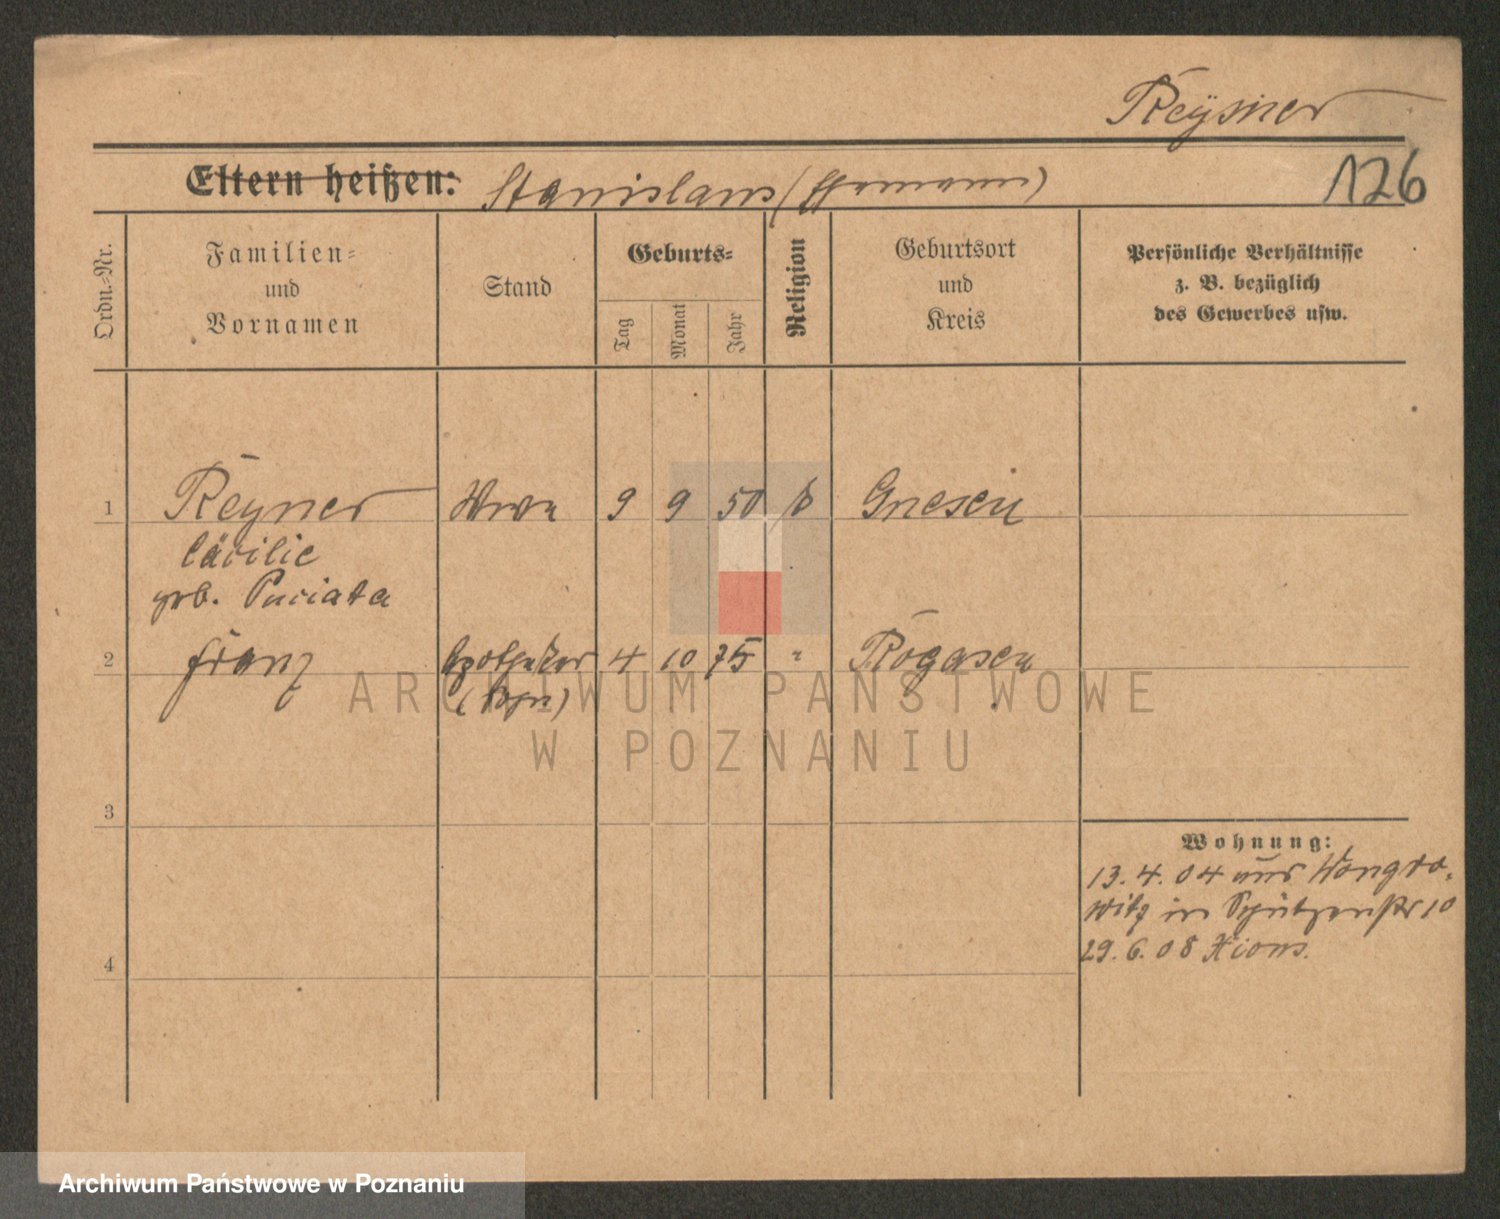 Reysner
Eltern heißen: Stanislaus (Ehemann)
126
Ordn.-Nr.
Familien-
und
Vornamen
Stand
Geburts-
Tag
Monat
Jahr
Religion
Geburtsort
und
Kreis
Persönliche Verhältnisse
z. B. bezüglich
des Gewerbes usw.
1 Reyner Wwe 9 9 50 k Gnesen
Cäcilie
geb.
2 Franz Apotheker 4 10 75 " Rogasen
(Sohn)
3
4
Wohnung:
13. 4. 04 aus Wongro-
witz in Schützenstr 10
29. 6. 08 Xions.
ARCHIWUM PAŃSTWOWE
W POZNANIU
Archiwum Państwowe w Poznaniu